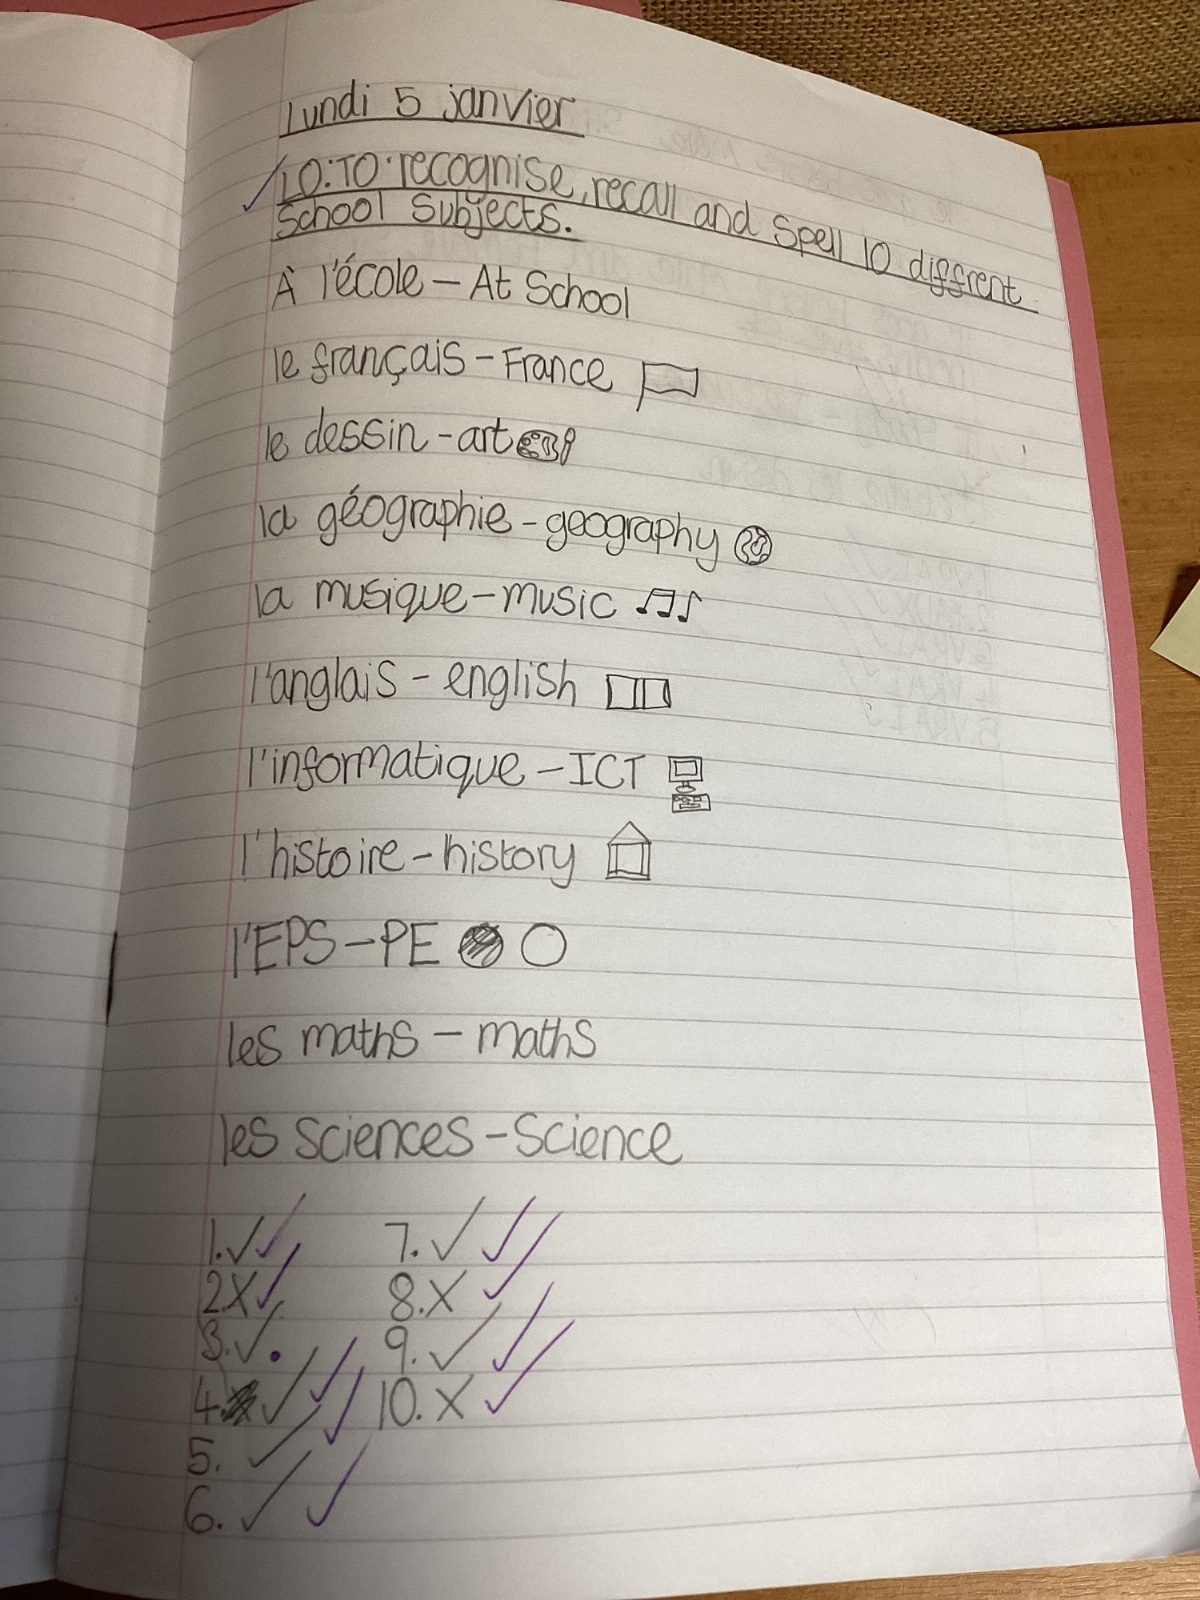 Lundi 5 janvier
LO:TO recognise, recall and spell 10 diffrent
School Subjects.
À l'école – At School
le français – France
le dessin – art
la géographie – geography
la musique – music
l'anglais – english
l'informatique – ICT
l'histoire – history
l'EPS – PE
les maths – maths
les sciences – Science
1. ✓✓ 7. ✓✓✓
2. X✓ 8. X✓
3. ✓• 9. ✓✓
4. ✓✓ 10. X✓
5. ✓✓
6. ✓✓